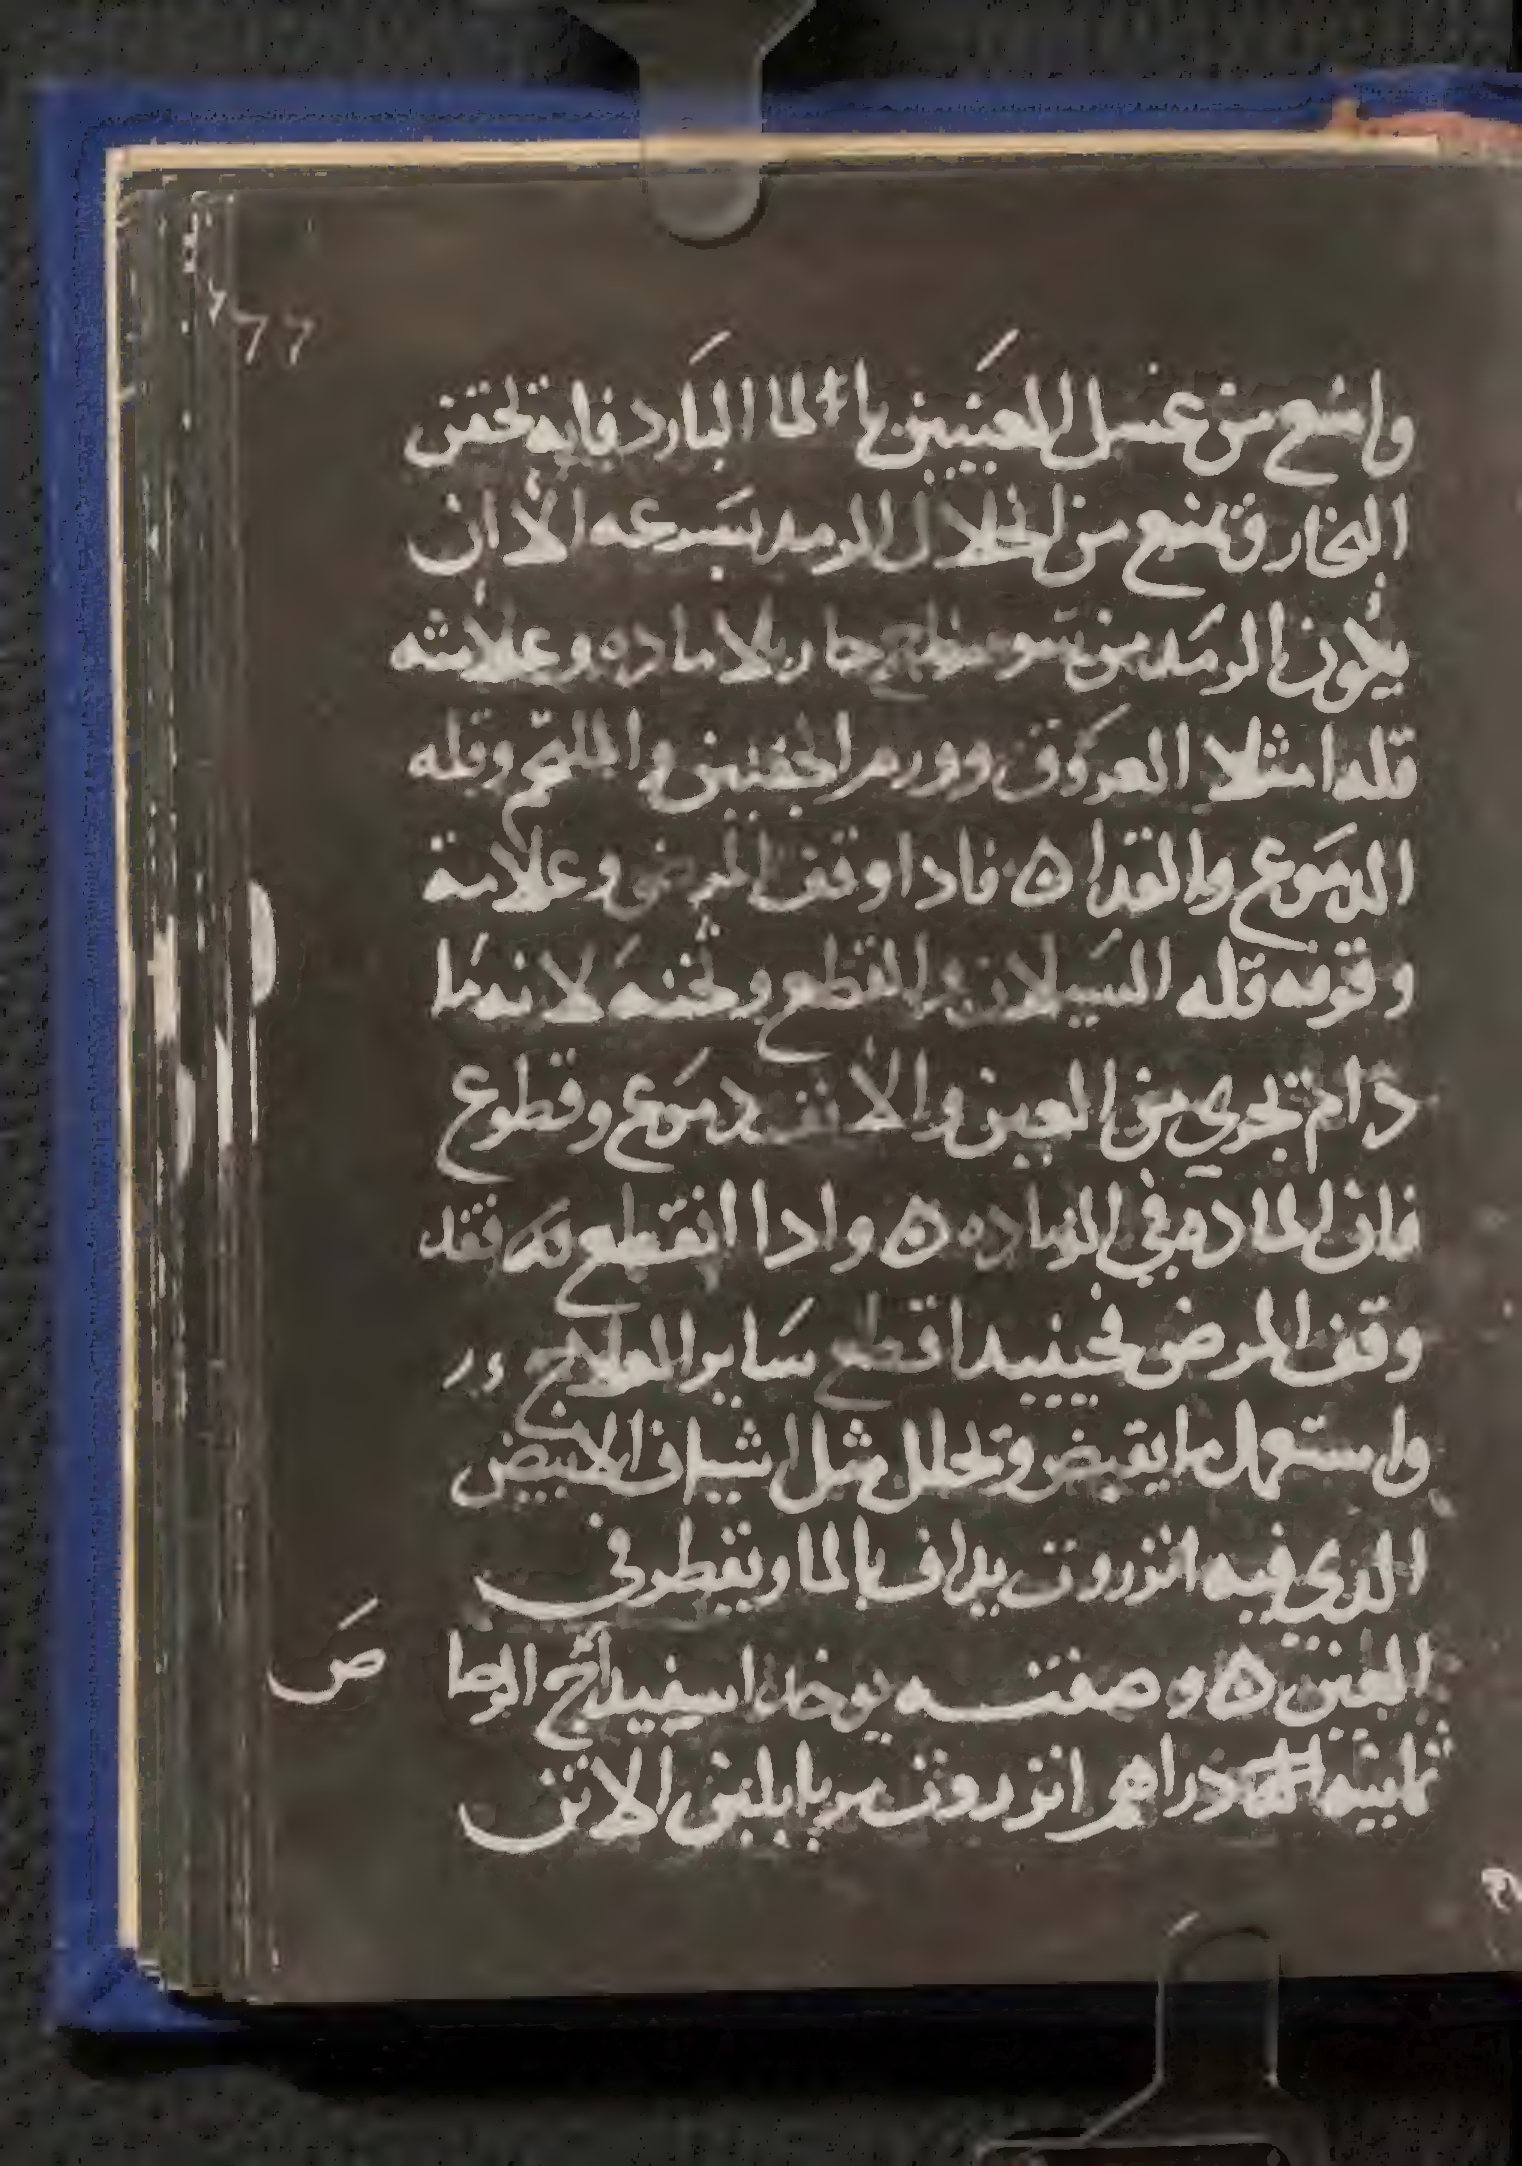 77
وامنع من غسل العينين بالما البارد فانه تحقن
البخار وتمنع من انحلال الرمد بسرعه الا ان
يكون الرمد من سو مزاج حار بلا ماده وعلامته
قله امتلا العروق وورم الجفنين والملتحم وقله
الدموع والقدا ٥ فادا وقف المرض وعلامة
وقوفه قله السيلان والقطع وتخنه لانه ما
دام تجري من العين والانف دموع وقطوع
فان الماده في الزياده ٥ وادا انقطع فقد
وقف المرض فحينيد اقطع ساير العلاج
واستعمل ما يقبض وتحلل مثل اشياف الابيض
الدي فيه انزروت يداف بالما ويقطر في
العين ٥ وصفتـه يوخد اسفيداج الرصا
ص
ثمانيه دراهم انزروت مربا بلبن الاتن